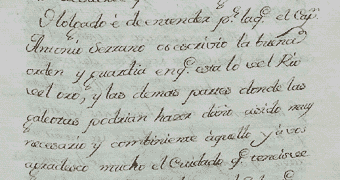 Holgado é de entender p.r la q.e el Cap.n
Antonio Serrano os escrivio la buena
orden y guardia en q.e esta lo del Rio
del oro, y las demas partes donde las
galeotas podrian hazer daño asido muy
necesario y combiniente aquello y os
agradesco mucho el Cuidado q.e